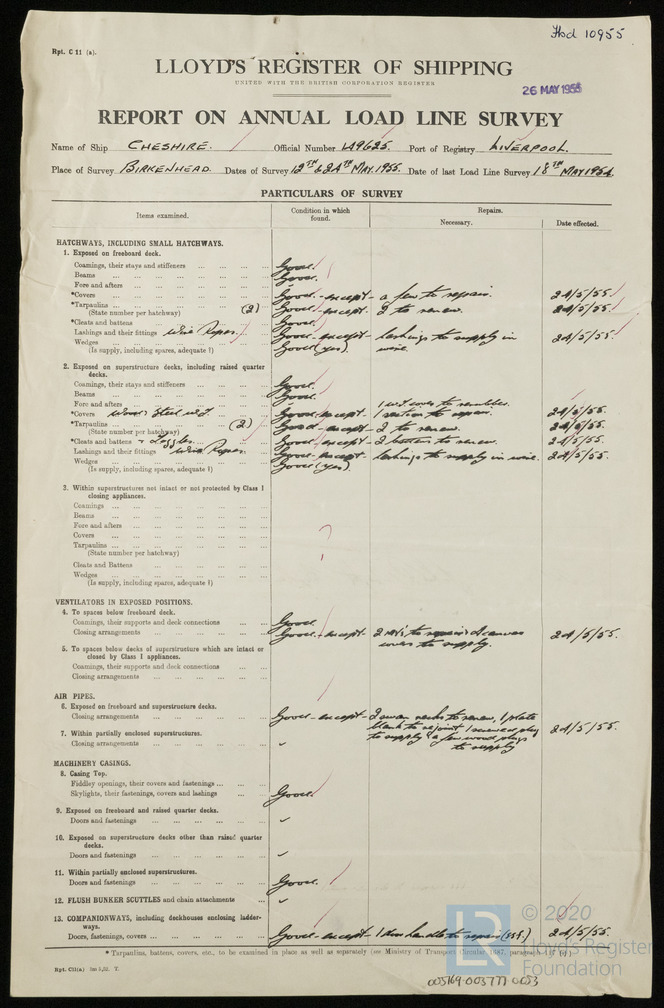 Fbd 10955
Rpt. C 11 (a).
LLOYD'S REGISTER OF SHIPPING
UNITED WITH THE BRITISH CORPORATION REGISTER
26 MAY 1955
REPORT ON ANNUAL LOAD LINE SURVEY
Name of Ship CHESHIRE. Official Number 149625. Port of Registry LIVERPOOL.
Place of Survey BIRKENHEAD. Dates of Survey 12TH & 24TH MAY. 1955. Date of last Load Line Survey 18TH MAY 1954.
PARTICULARS OF SURVEY
Items examined. Condition in which found. Repairs. Necessary. Date effected.
HATCHWAYS, INCLUDING SMALL HATCHWAYS.
1. Exposed on freeboard deck.
Coamings, their stays and stiffeners Good.
Beams Good.
Fore and afters
*Covers Good - except - a few to repair. 24/5/55.
*Tarpaulins (2) Good - except - 2 to renew. 24/5/55.
(State number per hatchway)
*Cleats and battens Good.
Lashings and their fittings Wire Ropes. Good - except - lashings to supply in wire. 24/5/55.
Wedges Good (yes).
(Is supply, including spares, adequate ?)
2. Exposed on superstructure decks, including raised quarter decks.
Coamings, their stays and stiffeners Good.
Beams Good.
Fore and afters
*Covers Wood & Steel W.T. Good - except - 1 W.T. cover to rerubber. 1 section to repair. 24/5/55.
*Tarpaulins (2) Good - except - 2 to renew. 24/5/55.
(State number per hatchway)
*Cleats and battens & Toggles Good - except - 2 battens to renew. 24/5/55.
Lashings and their fittings Wire Ropes. Good - except - lashings to supply in wire. 24/5/55.
Wedges Good (yes)
(Is supply, including spares, adequate ?)
3. Within superstructures not intact or not protected by Class 1 closing appliances.
Coamings
Beams
Fore and afters
Covers
Tarpaulins
(State number per hatchway)
Cleats and Battens
Wedges
(Is supply, including spares, adequate ?)
VENTILATORS IN EXPOSED POSITIONS.
4. To spaces below freeboard deck.
Coamings, their supports and deck connections Good.
Closing arrangements Good - except - 2 to repair & canvas covers to supply. 24/5/55.
5. To spaces below decks of superstructure which are intact or closed by Class 1 appliances.
Coamings, their supports and deck connections
Closing arrangements
AIR PIPES.
6. Exposed on freeboard and superstructure decks.
Closing arrangements Good - except - 2 swan necks to renew, 1 plate blank to rejoint, 1 screwed plug to supply & a few wood plugs to supply 24/5/55.
7. Within partially enclosed superstructures.
Closing arrangements
MACHINERY CASINGS.
8. Casing Top.
Fiddley openings, their covers and fastenings
Skylights, their fastenings, covers and lashings Good.
9. Exposed on freeboard and raised quarter decks.
Doors and fastenings
10. Exposed on superstructure decks other than raised quarter decks.
Doors and fastenings
11. Within partially enclosed superstructures.
Doors and fastenings Good.
12. FLUSH BUNKER SCUTTLES and chain attachments
13. COMPANIONWAYS, including deckhouses enclosing ladder-ways.
Doors, fastenings, covers Good - except - 1 door handle to repair 24/5/55.
* Tarpaulins, battens, covers, etc., to be examined in place as well as separately (see Ministry of Transport Circular 1687, paragraph
Rpt. C11(a) T.
005769-003777-0053
LR
© 2020
Lloyd's Register
Foundation